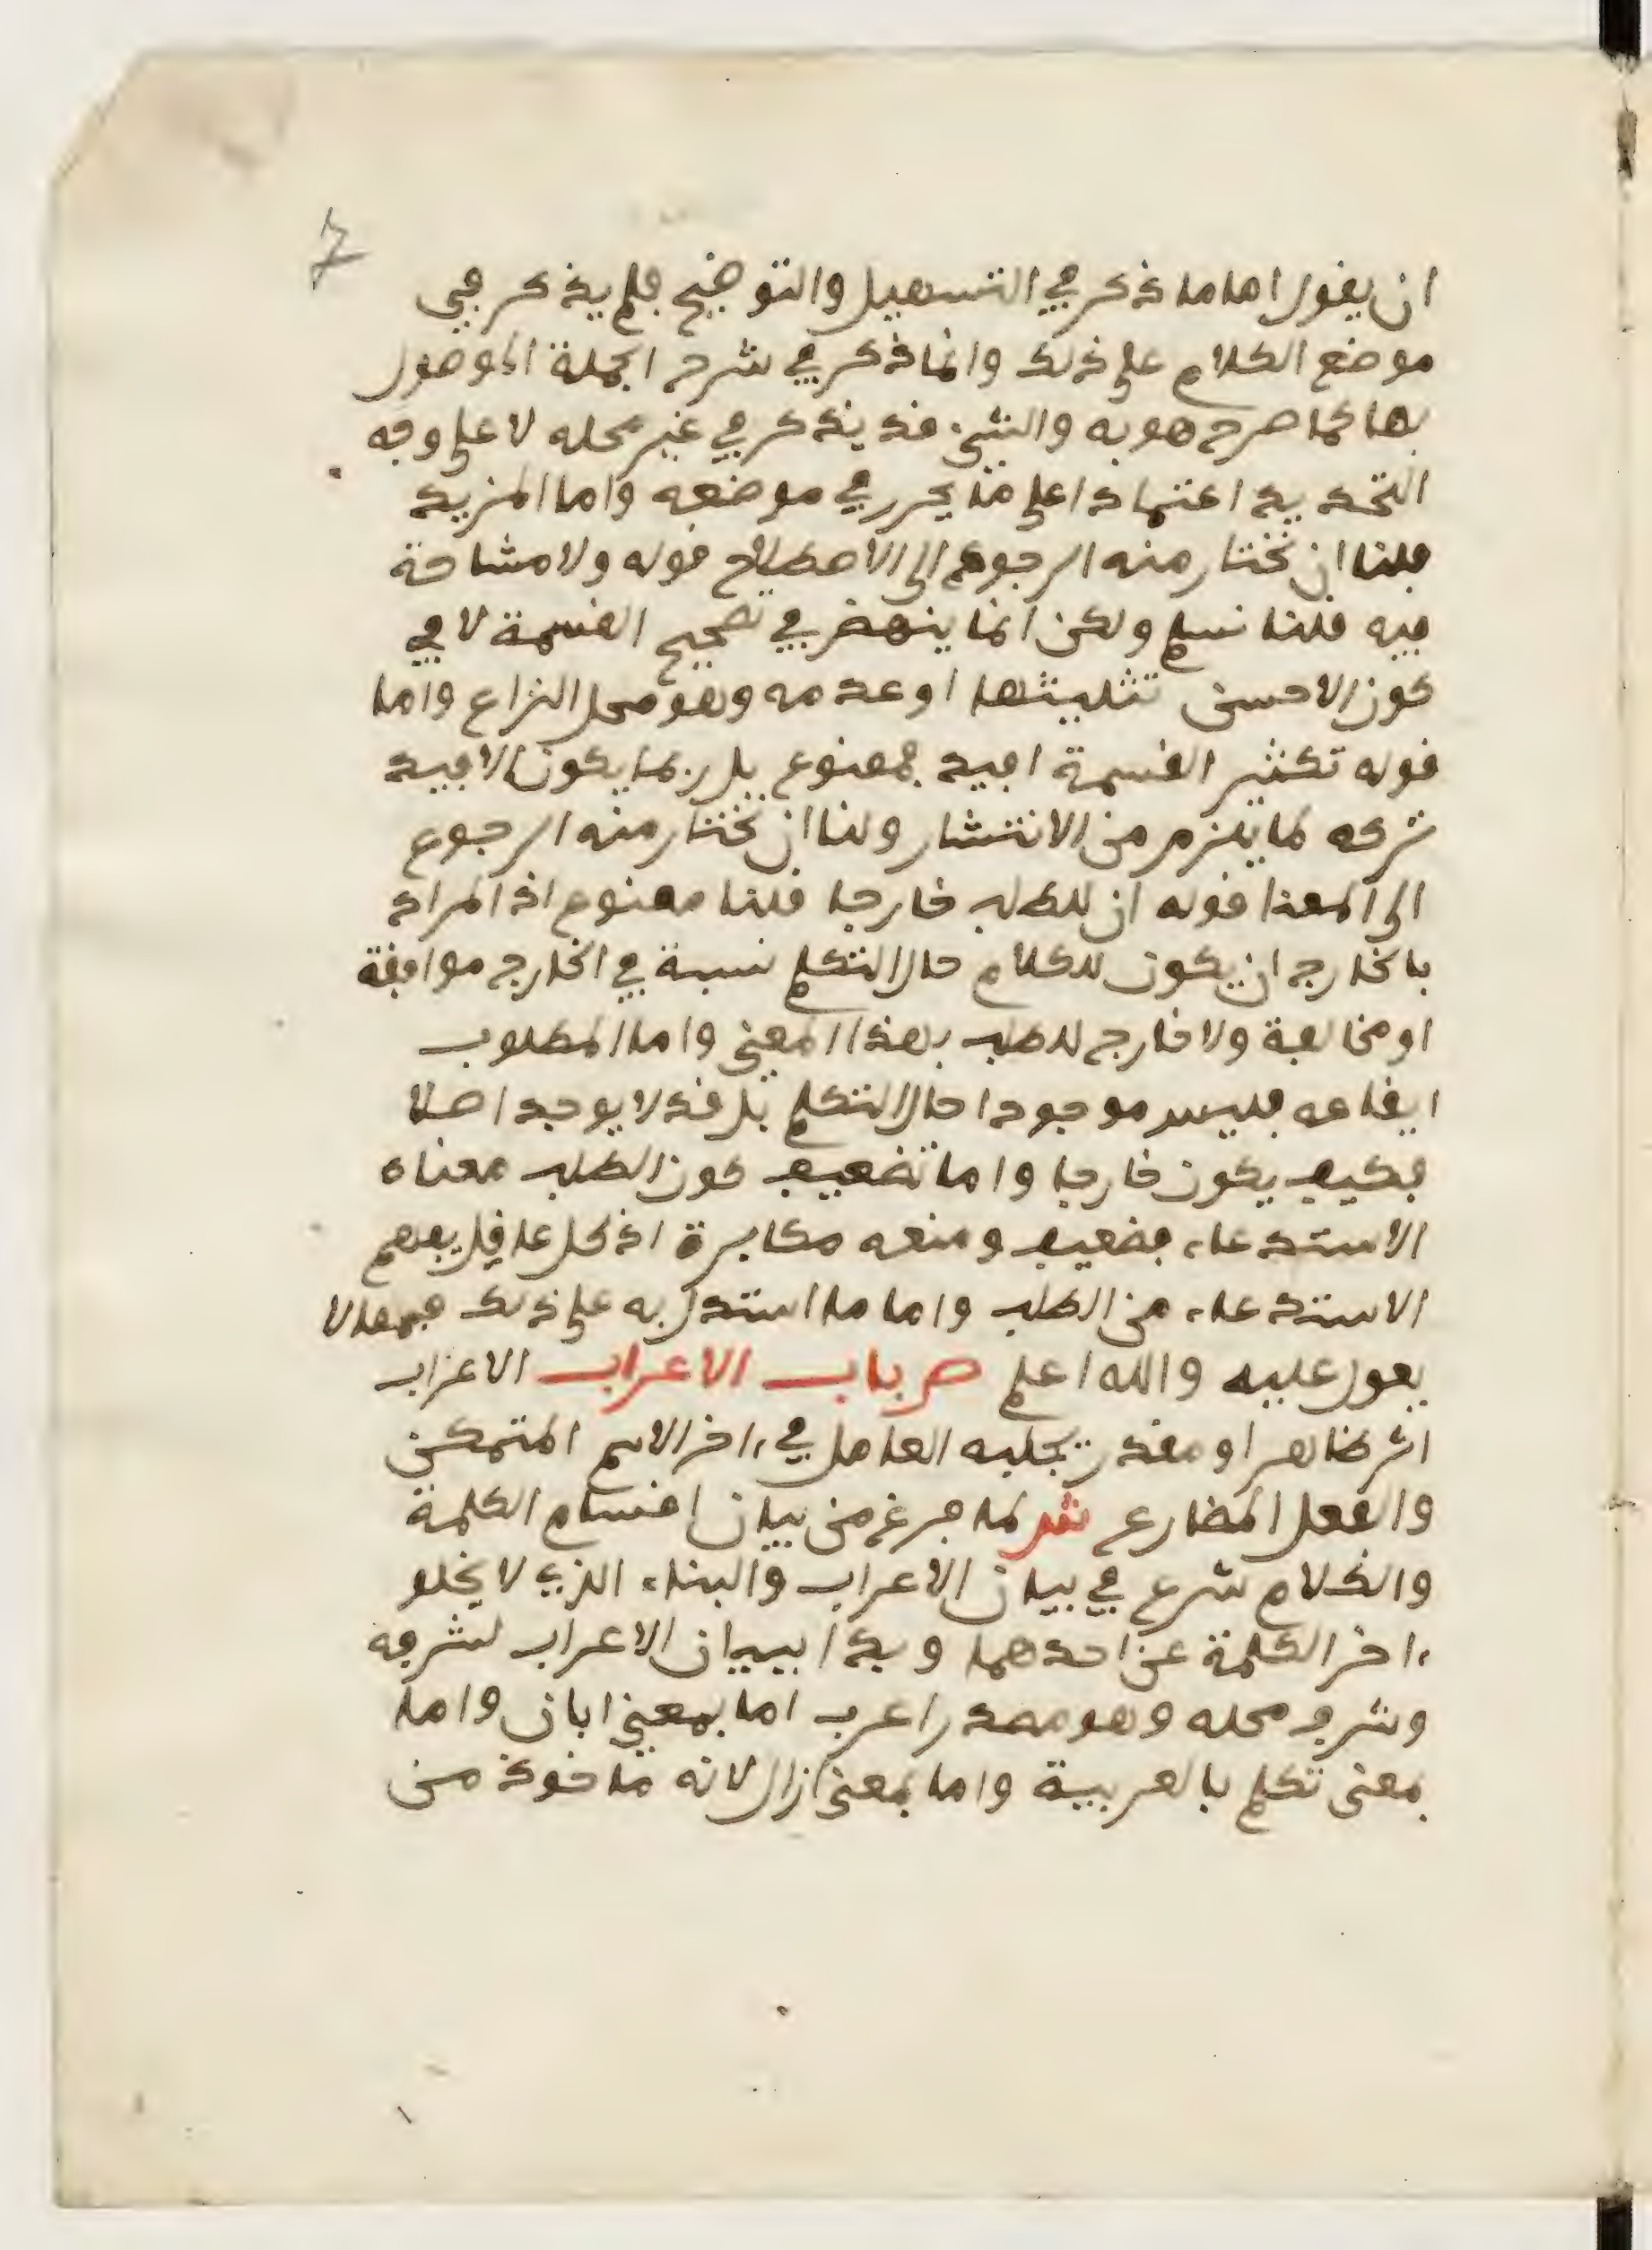 7
ان يقول اما ما ذكر في التسهيل والتوضيح فلم يذكر في
موضع الكلام على ذلك وانما ذكر في شرح الجملة الموصول
بها كما صرح هو به والشيء قد يذكر في غير محله لا على وجه
التحديد اعتمادا على ما يحرر في موضعه واما المزيد
فلنا ان نختار منه الرجوع الى الاصطلاح قوله ولا مشاحة
فيه قلنا نسلم ولكن انما ينهض في تصحيح القسمة لا في
كون الاحسن تثليثها او عدمه وهو محل النزاع واما
قوله تكثير القسمة افيد فممنوع بل ربما يكون الافيد
تركه لما يلزم من الانتشار ولنا ان نختار منه الرجوع
الى المعنا قوله ان للطلب خارجا قلنا ممنوع اذ المراد
بالخارج ان يكون للكلام حال التكلم نسبة في الخارج موافقة
او مخالفة ولا خارج للطلب بهذا المعنى واما المطلوب
ايقاعه فليس موجودا حال التكلم بل قد لا يوجد اصلا
فكيف يكون خارجا واما تضعيف كون الطلب معناه
الاستدعاء فضعيف ومنعه مكابرة اذ كل عاقل يفهم
الاستدعاء من الطلب واما ما استدل به على ذلك فمما لا
يعول عليه والله اعلم ص باب الاعراب الاعراب
اثر ظاهر او مقدر يجلبه العامل في ءاخر الاسم المتمكن
والفعل المضارع ش لما فرغ من بيان اقسام الكلمة
والكلام شرع في بيان الاعراب والبناء الذي لا يخلو
ءاخر الكلمة عن احدهما وبدا ببيان الاعراب لشرفه
وشرف محله وهو مصدر اعرب اما بمعنى ابان واما
بمعنى تكلم بالعربية واما بمعنى ازال لانه ماخوذ من